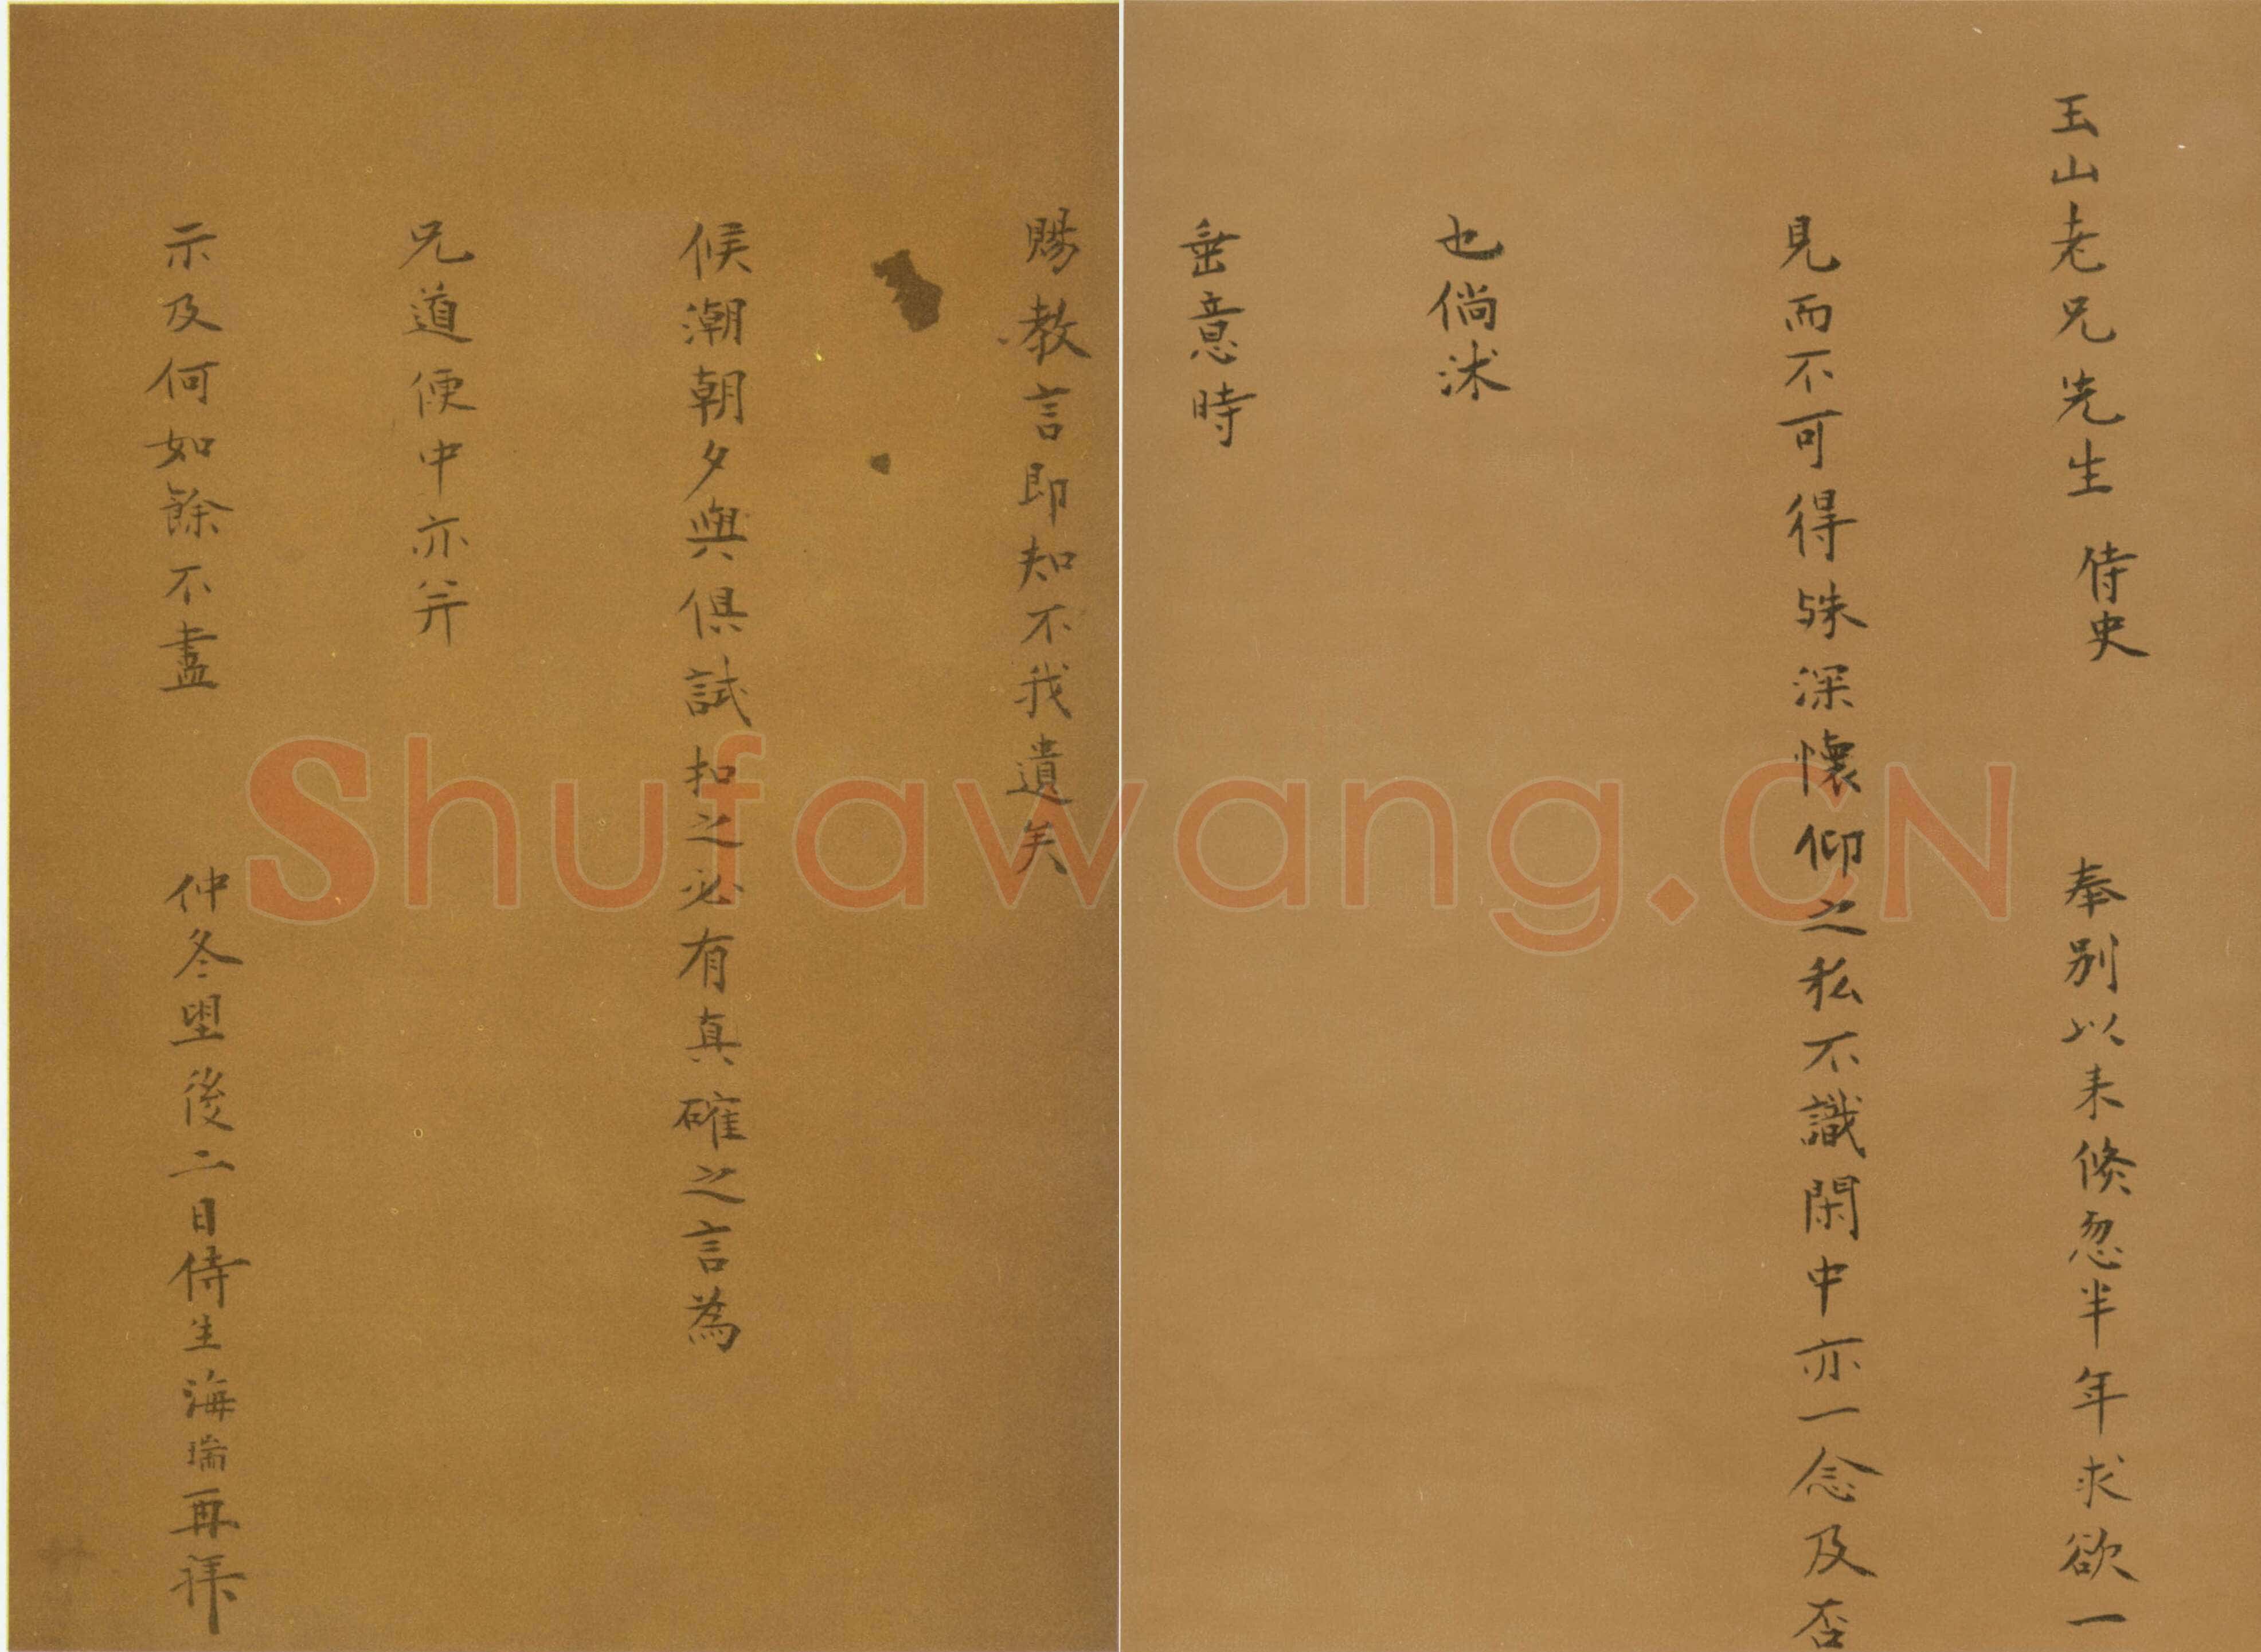 玉山老兄先生 侍史 奉別以来倐忽半年求欲一
見而不可得殊深懷仰之私不識閑中亦一念及否
也倘沐
垂意時
賜教言即知不我遺矣
候潮朝夕與俱試扣之必有真確之言為
兄道便中亦并
示及何如餘不盡 仲冬望後二日侍生海瑞再拜
Shufawang.CN